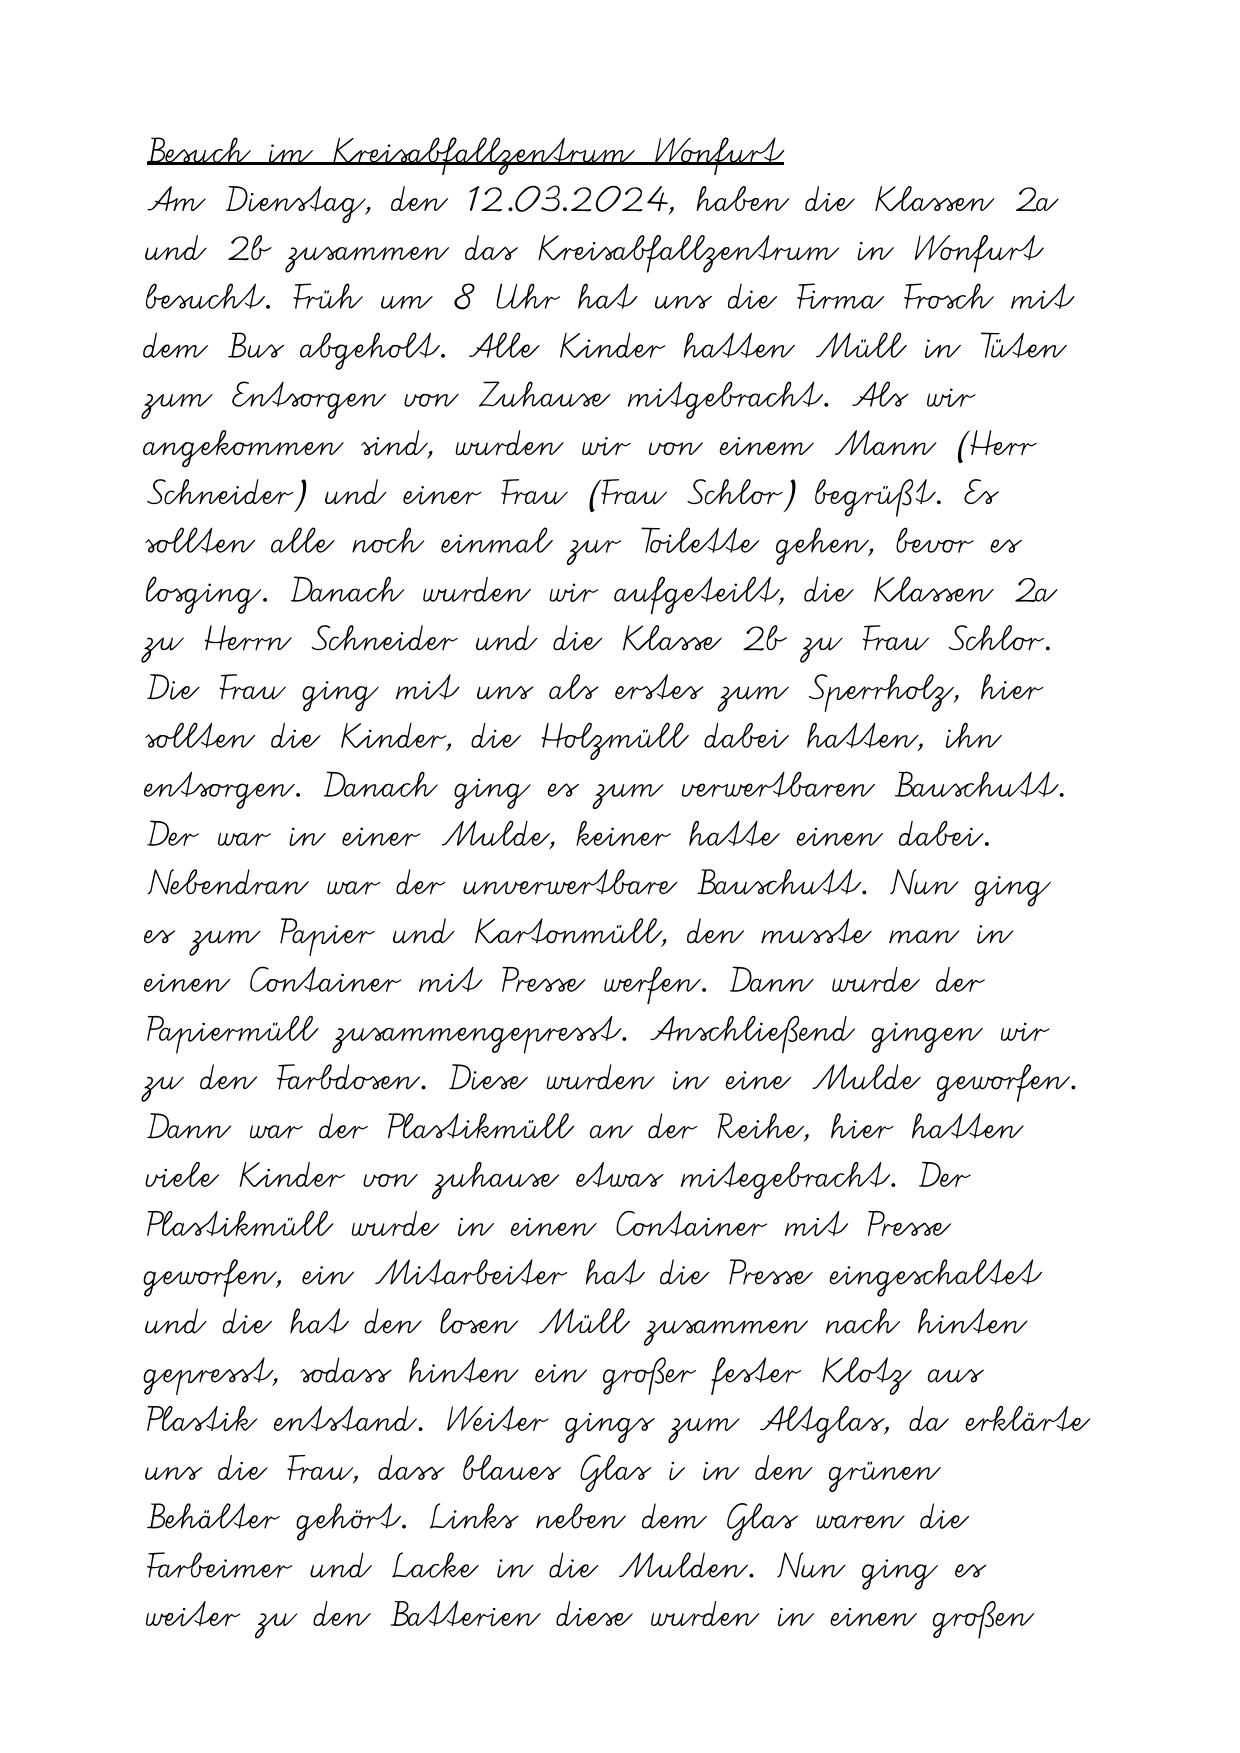 Besuch im Kreisabfallzentrum Wonfurt
Am Dienstag, den 12.03.2024, haben die Klassen 2a
und 2b zusammen das Kreisabfallzentrum in Wonfurt
besucht. Früh um 8 Uhr hat uns die Firma Frosch mit
dem Bus abgeholt. Alle Kinder hatten Müll in Tüten
zum Entsorgen von Zuhause mitgebracht. Als wir
angekommen sind, wurden wir von einem Mann (Herr
Schneider) und einer Frau (Frau Schlor) begrüßt. Es
sollten alle noch einmal zur Toilette gehen, bevor es
losging. Danach wurden wir aufgeteilt, die Klassen 2a
zu Herrn Schneider und die Klasse 2b zu Frau Schlor.
Die Frau ging mit uns als erstes zum Sperrholz, hier
sollten die Kinder, die Holzmüll dabei hatten, ihn
entsorgen. Danach ging es zum verwertbaren Bauschutt.
Der war in einer Mulde, keiner hatte einen dabei.
Nebendran war der unverwertbare Bauschutt. Nun ging
es zum Papier und Kartonmüll, den musste man in
einen Container mit Presse werfen. Dann wurde der
Papiermüll zusammengepresst. Anschließend gingen wir
zu den Farbdosen. Diese wurden in eine Mulde geworfen.
Dann war der Plastikmüll an der Reihe, hier hatten
viele Kinder von zuhause etwas mitegebracht. Der
Plastikmüll wurde in einen Container mit Presse
geworfen, ein Mitarbeiter hat die Presse eingeschaltet
und die hat den losen Müll zusammen nach hinten
gepresst, sodass hinten ein großer fester Klotz aus
Plastik entstand. Weiter gings zum Altglas, da erklärte
uns die Frau, dass blaues Glas i in den grünen
Behälter gehört. Links neben dem Glas waren die
Farbeimer und Lacke in die Mulden. Nun ging es
weiter zu den Batterien diese wurden in einen großen